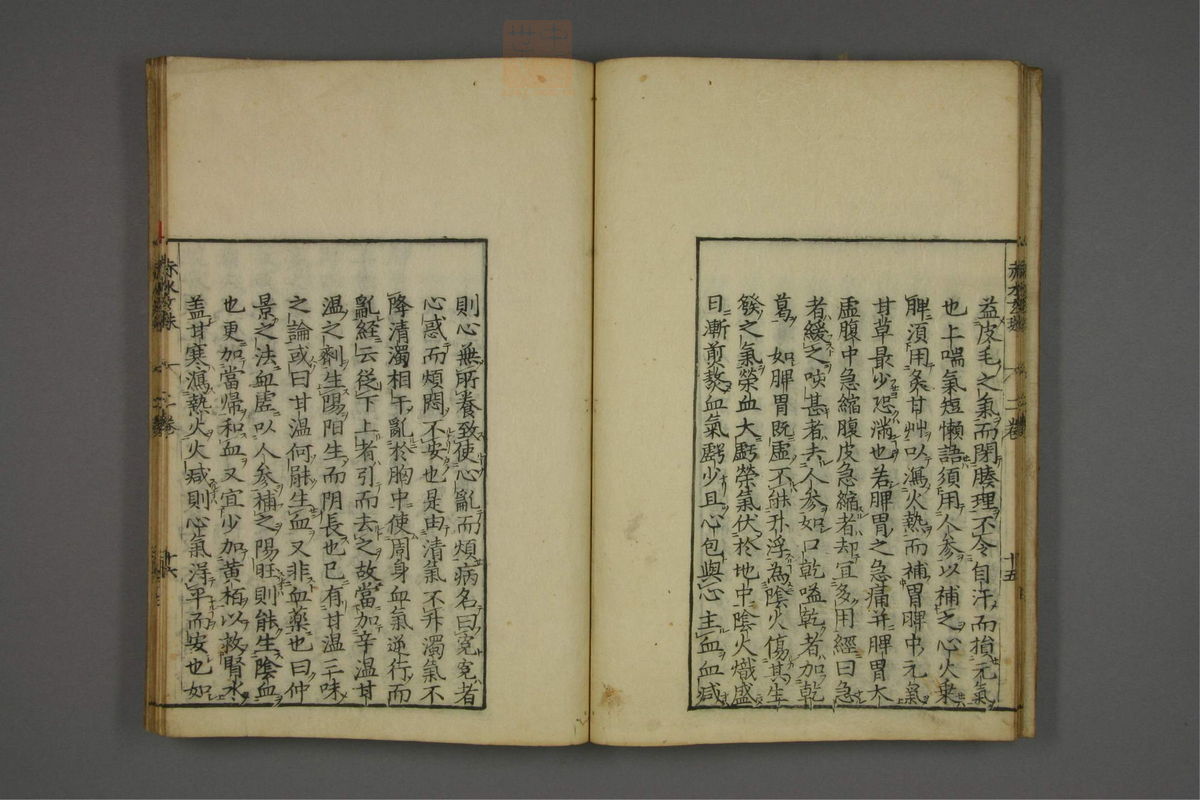 益皮毛之氣而閉腠理不令自汗而損元氣
也上喘氣短懶語須用人參以補之心火乗
脾須用炙甘艸以瀉火熱而補胃脾中元氣
甘草最少恐滿也若脾胃之急痛并脾胃太
虚腹中急縮腹皮急縮者却宜多用經曰急
者緩之咳甚者去人參如口乾嗌乾者加乾
葛　如脾胃既虚不能升浮為陰火傷其生
發之氣榮血大虧榮氣伏於地中陰火熾盛
日漸煎熬血氣虧少且心包與心主血血减
赤水玄珠
二卷
十五
則心無所養致使心亂而煩病名曰悗悗者
心惑而煩悶不安也是由清氣不升濁氣不
降清濁相干亂於胸中使周身血氣逆行而
亂經云從下上者引而去之故當加辛温甘
温之劑生陽陽生而阴長也已有甘温三味
之論或曰甘温何能生血又非血藥也曰仲
景之法血虚以人參補之陽旺則能生陰血
也更加當帰和血又宜少加黄栢以救腎水
盖甘寒瀉熱火火减則心氣淂平而安也如
赤水玄珠
二卷
十六